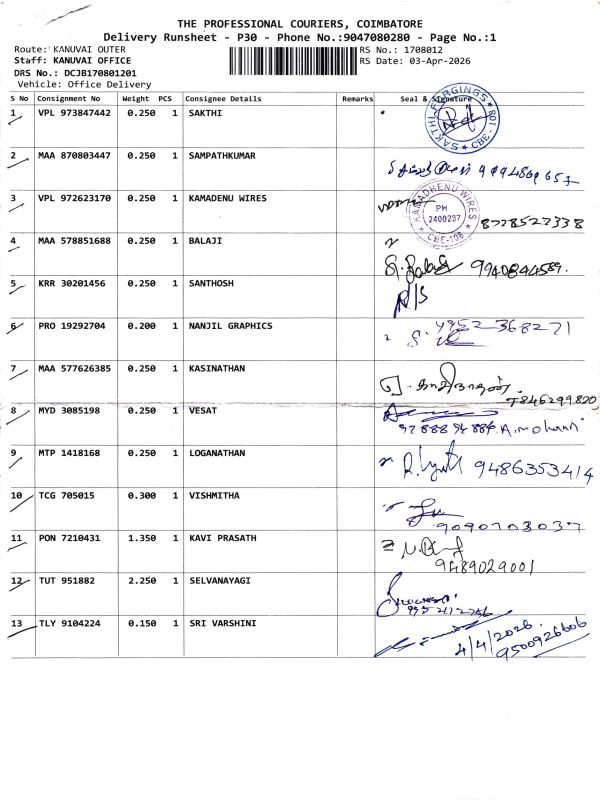 THE PROFESSIONAL COURIERS, COIMBATORE
Delivery Runsheet - P30 - Phone No.:9047080280 - Page No.:1
Route: KANUVAI OUTER RS No.: 1708012
Staff: KANUVAI OFFICE RS Date: 03-Apr-2026
DRS No.: DCJB170801201
Vehicle: Office Delivery
S No Consignment No Weight PCS Consignee Details Remarks Seal & Signature
1 VPL 973847442 0.250 1 SAKTHI
SAKTHI FORGINGS CBE-108
2 MAA 870803447 0.250 1 SAMPATHKUMAR
3 VPL 972623170 0.250 1 KAMADENU WIRES
KAMADHENU WIRES PH 2400287 CBE-108
8778527338
4 MAA 578851688 0.250 1 BALAJI
9940844589.
5 KRR 30201456 0.250 1 SANTHOSH
R/S
6 PRO 19292704 0.200 1 NANJIL GRAPHICS
9952368271
7 MAA 577626385 0.250 1 KASINATHAN
காசிநாதன்
7846299820
8 MYD 3085198 0.250 1 VESAT
A.mohan
9 MTP 1418168 0.250 1 LOGANATHAN
9486353414
10 TCG 705015 0.300 1 VISHMITHA
9090703037
11 PON 7210431 1.350 1 KAVI PRASATH
9489029001
12 TUT 951882 2.250 1 SELVANAYAGI
13 TLY 9104224 0.150 1 SRI VARSHINI
4/4/2026
9500926606